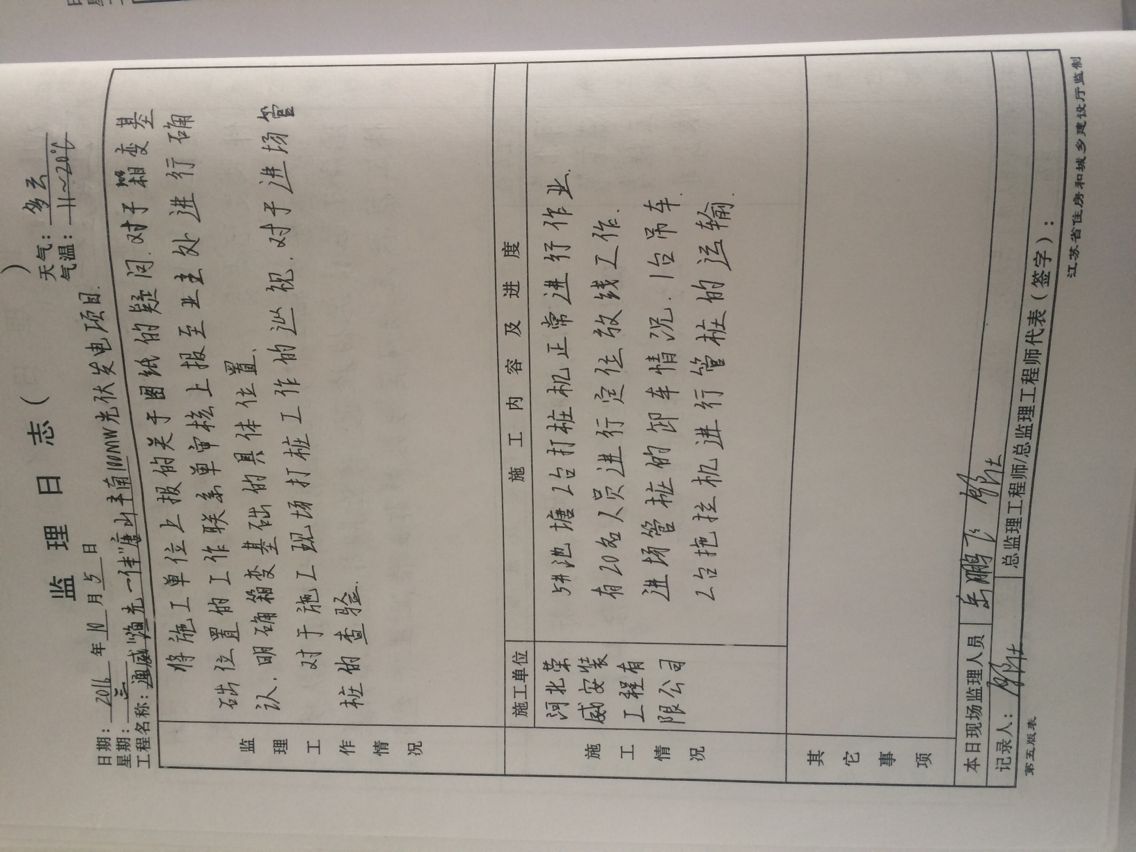 监 理 日 志（ ）
日期：2016 年 10 月 5 日 天气：多云
星期：三 气温：11～20℃
工程名称："渔光一体"唐山丰南100MW光伏发电项目.
监理工作情况
将施工单位上报的关于图纸的疑问.对于箱变基
础位置的工作联系单审核上报至业主处进行确
认.明确箱变基础的具体位置.
对于施工现场打桩工作的巡视.对于进场管
桩的查验.
施工情况
施工单位 施 工 内 容 及 进 度
河北荣
威安装
工程有
限公司
5#池塘2台打桩机正常进行作业.
有20名人员进行定位放线工作.
进场管桩的卸车情况.1台吊车.
2台拖拉机进行管桩的运输.
其它事项
本日现场监理人员 岳鹏飞
记录人： 总监理工程师/总监理工程师代表（签字）：
第五版表 江苏省住房和城乡建设厅监制